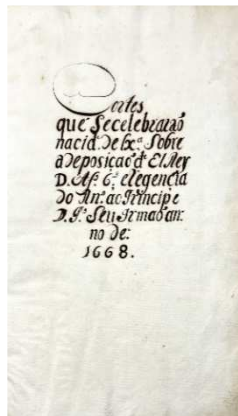 Cortes
que Secelebrarão
nacid.e de Lx.a Sobre
a Deposição d' El Rey
D. Af.o 6.o e Regencia
do Rn.o ao Principe
D. P.o Seu Irmão an-
no de:
1668.